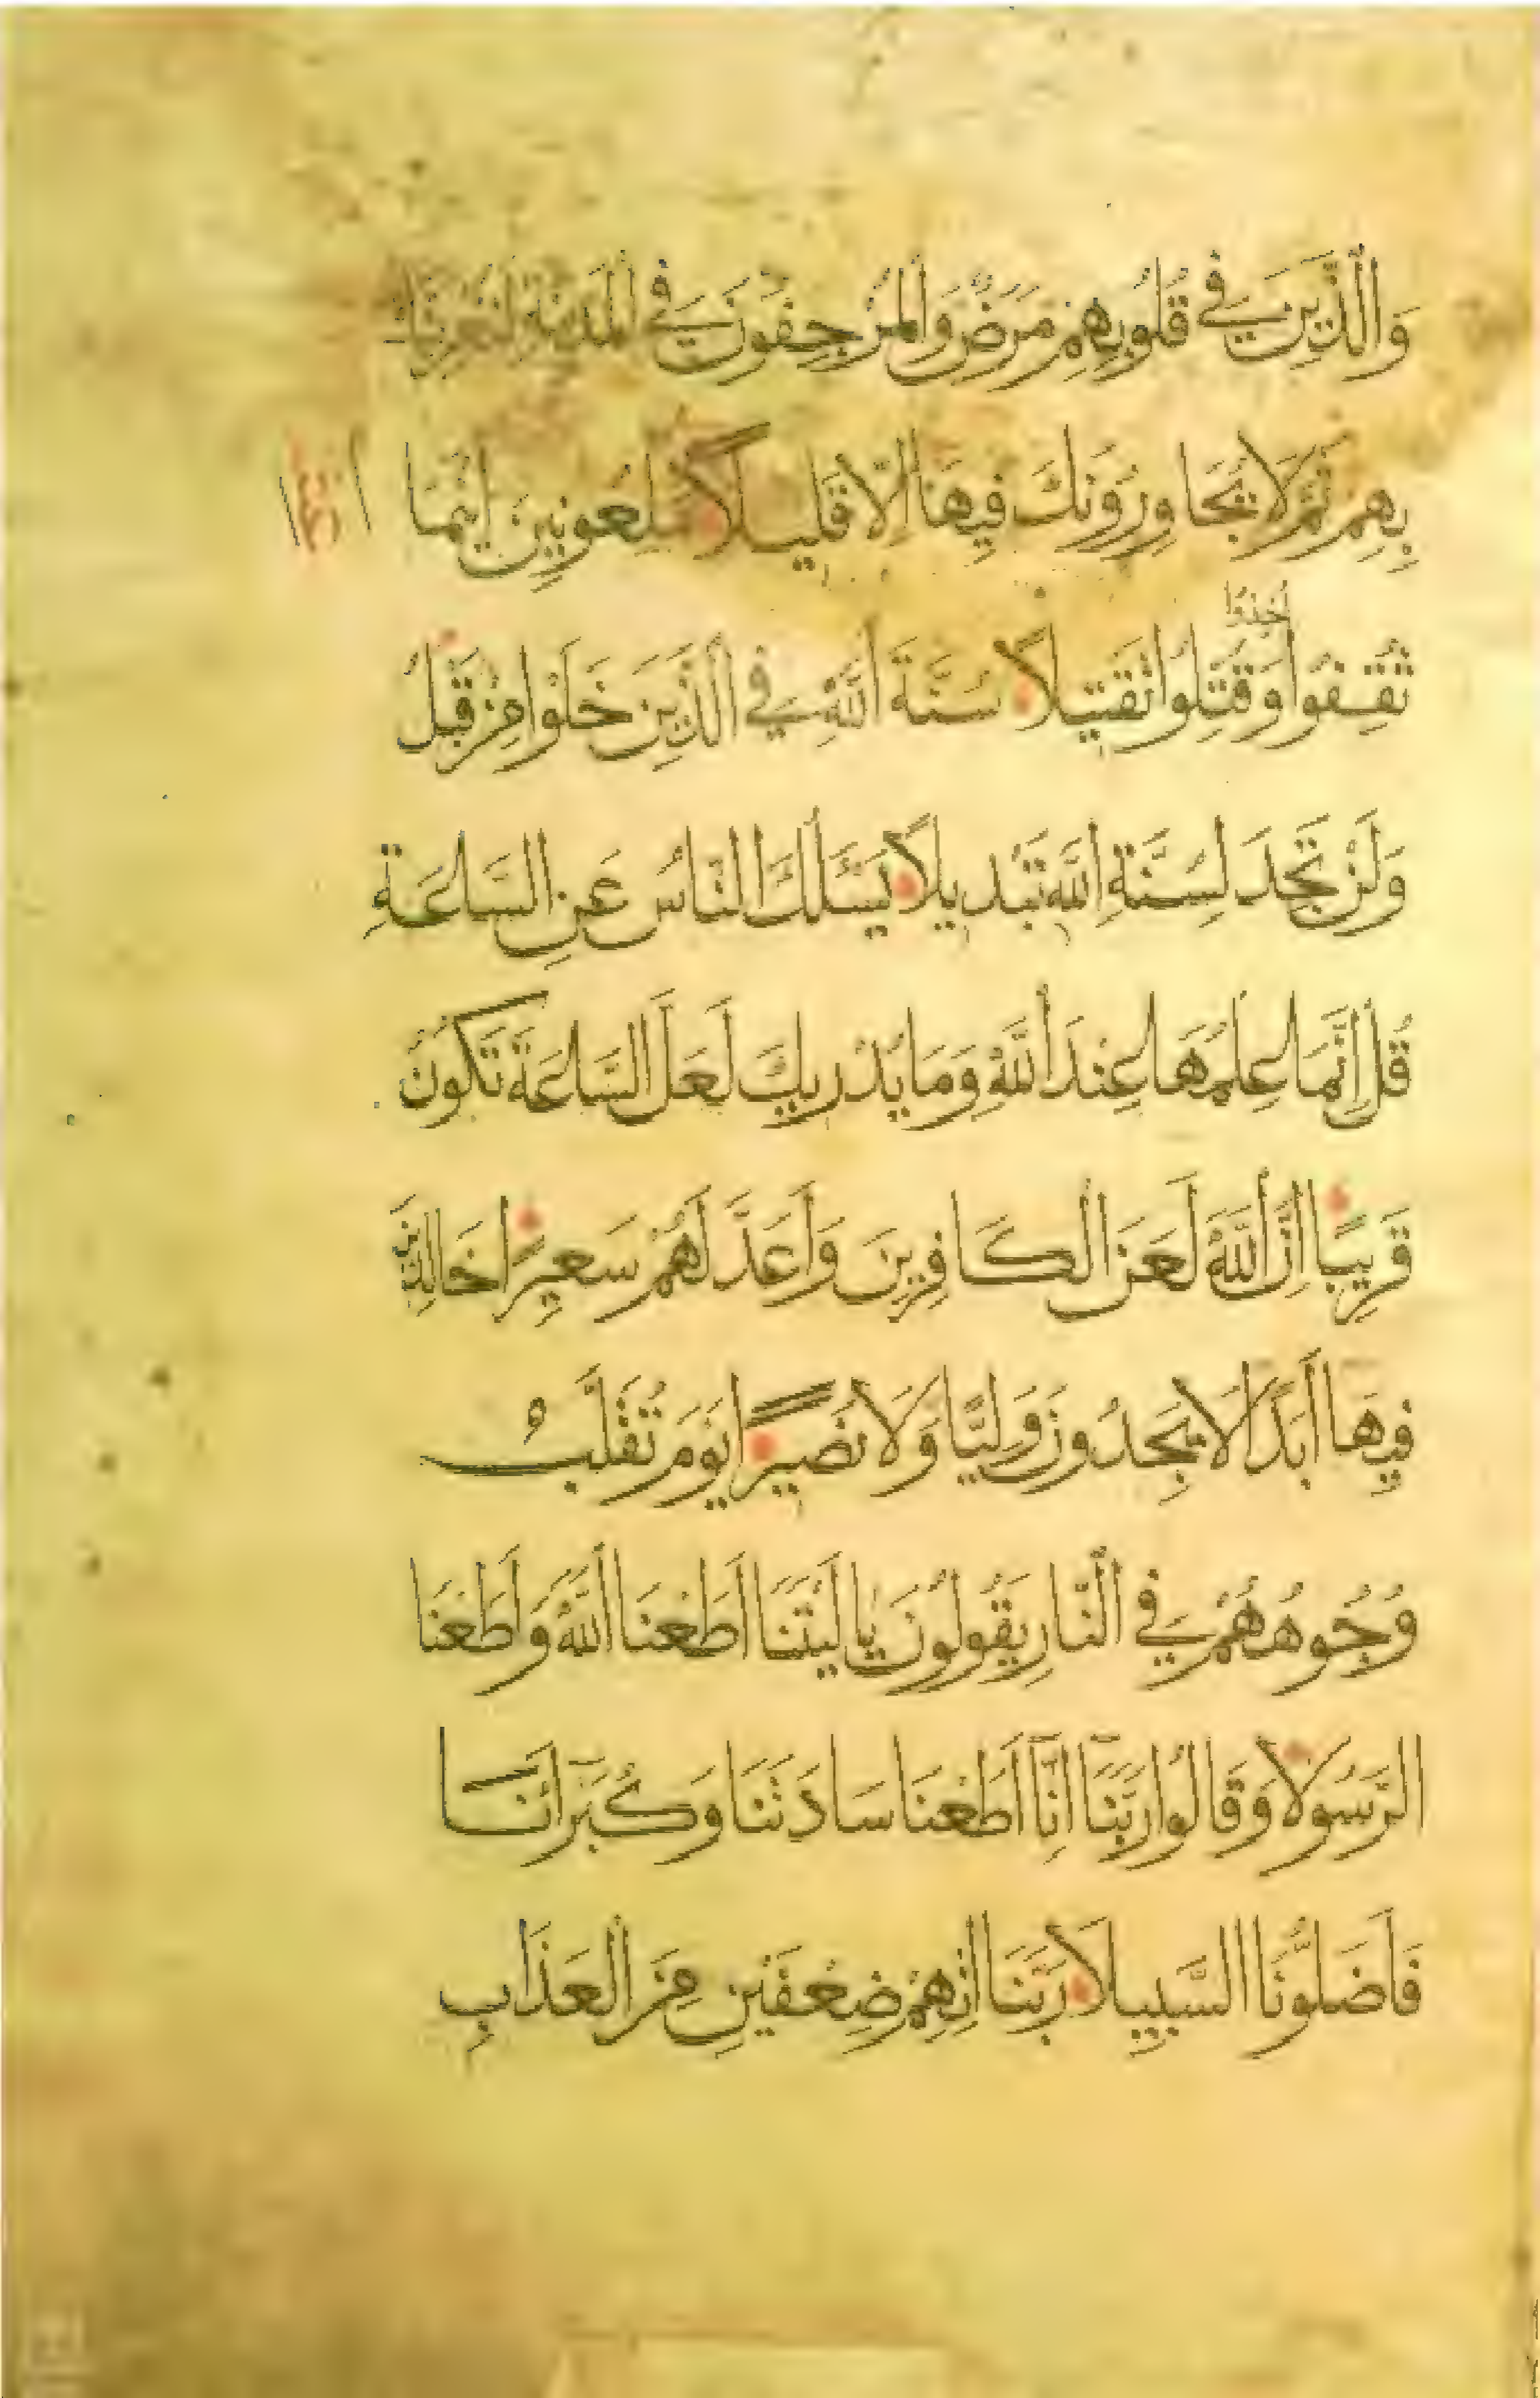 وَالَّذِينَ فِي قُلُوبِهِمْ مَرَضٌ وَالْمُرْجِفُونَ فِي الْمَدِينَةِ لَنُغْرِيَنَّكَ
بِهِمْ ثُمَّ لَا يُجَاوِرُونَكَ فِيهَا إِلَّا قَلِيلًا مَلْعُونِينَ أَيْنَمَا
أُخِذُوا
ثُقِفُوا وَقُتِّلُوا تَقْتِيلًا سُنَّةَ اللَّهِ فِي الَّذِينَ خَلَوْا مِنْ قَبْلُ
وَلَنْ تَجِدَ لِسُنَّةِ اللَّهِ تَبْدِيلًا يَسْئَلُكَ النَّاسُ عَنِ السَّاعَةِ
قُلْ إِنَّمَا عِلْمُهَا عِنْدَ اللَّهِ وَمَا يُدْرِيكَ لَعَلَّ السَّاعَةَ تَكُونُ
قَرِيبًا إِنَّ اللَّهَ لَعَنَ الْكَافِرِينَ وَأَعَدَّ لَهُمْ سَعِيرًا خَالِدِينَ
فِيهَا أَبَدًا لَا يَجِدُونَ وَلِيًّا وَلَا نَصِيرًا يَوْمَ تُقَلَّبُ
وُجُوهُهُمْ فِي النَّارِ يَقُولُونَ يَا لَيْتَنَا أَطَعْنَا اللَّهَ وَأَطَعْنَا
الرَّسُولَا وَقَالُوا رَبَّنَا إِنَّا أَطَعْنَا سَادَتَنَا وَكُبَرَائَنَا
فَأَضَلُّونَا السَّبِيلَا رَبَّنَا آتِهِمْ ضِعْفَيْنِ مِنَ الْعَذَابِ